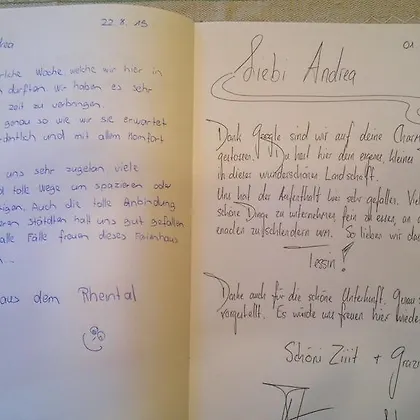 22.X.15
rliche Woche welche wir hier in
durften wir haben es sehr
zeit zu verbringen.
genau so wie wir sie erwartet
und mit allem Komfort
uns sehr zugetan viele
d tolle Wege um spazieren oder
igen. Auch die tolle Anbindung
ren Städten hatt uns gut gefallen
alle Fälle freuen dieses Ferienhaus
aus dem Rheintal
01.
Liebi Andrea
Dank Google sind wir auf deine Charm
gestossen. Du hast hier dein eigenes, kleines
in dieser wunderschönen Landschaft.
Uns hat der Aufenthalt hier sehr gefallen. Viel
schöne Dinge zu unternehmen, fein zu essen, an d
enaden zu schlendern usw. So lieben wir das
Tessin!
Danke auch für die schöne Unterkunft. Genau s
vorgestellt. Es würde uns freuen hier wieder
Schöni Ziiit + Grazi